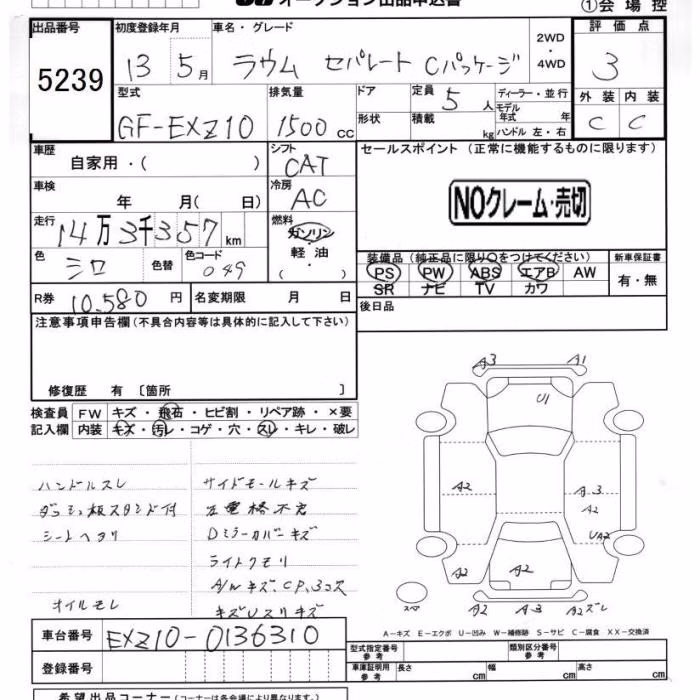 オークション出品申込書
①会場控
出品番号 初度登録年月 車名・グレード 2WD・4WD 評価点
5239 13 5月 ラウム セパレート Cパッケージ 3
型式 排気量 ドア 定員 5人 ディーラー・並行 外装 内装
GF-EXZ10 1500cc 形状 積載 kg モデル年式 年 ハンドル 左・右 C C
車歴 自家用・( ) シフト CAT セールスポイント (正常に機能するものに限ります)
車検 年 月( 日) 冷房 AC NOクレーム・売切
走行 14万3千357km 燃料 ガソリン・軽油・( )
色 シロ 色替 色コード 049 装備品 (純正品に限り○をつけてください) 新車保証書
PS PW ABS エアB AW 有・無
SR ナビ TV カワ
R券 10,580円 名変期限 月 日 後日品
注意事項申告欄 (不具合内容等は具体的に記入して下さい)
修復歴 有 [箇所 ]
検査員記入欄 FW キズ・飛石・ヒビ割・リペア跡・×要
内装 キズ・汚レ・コゲ・穴・スレ・キレ・破レ
ハンドルスレ サイドモールキズ
ダッシュ板スタンド付
シートヘタリ Dミラーカバーキズ
ライトクモリ
オイルモレ
A3 A1
U1
A2 A3
A2
UA2
A2 A2 A2
スペア A2 A3 A2ズレ
A－キズ E－エクボ U－凹み W－補修跡 S－サビ C－腐食 XX－交換済
車台番号 EXZ10-0136310 型式指定番号 参考 類別区分番号 参考
登録番号 車庫証明用 参考 長さ cm 幅 cm 高さ cm
希望出品コーナー (コーナーは各会場により異なります。)